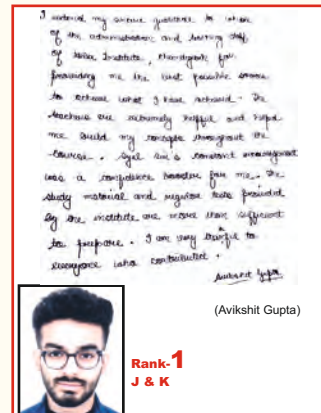 I extend my sincere gratitude to whole
of the administration and teaching staff
of Institute, Chandigarh for
providing me the best possible
to achieve what I have achieved. The
teachers are extremely helpful and helped
me build my concepts throughout the
course. sir's constant encouragement
was a confidence booster for me. The
study material and regular tests provided
by the institute are more than sufficient
to prepare. I am very to
everyone who contributed.
Avikshit Gupta
(Avikshit Gupta)
Rank-1
J & K